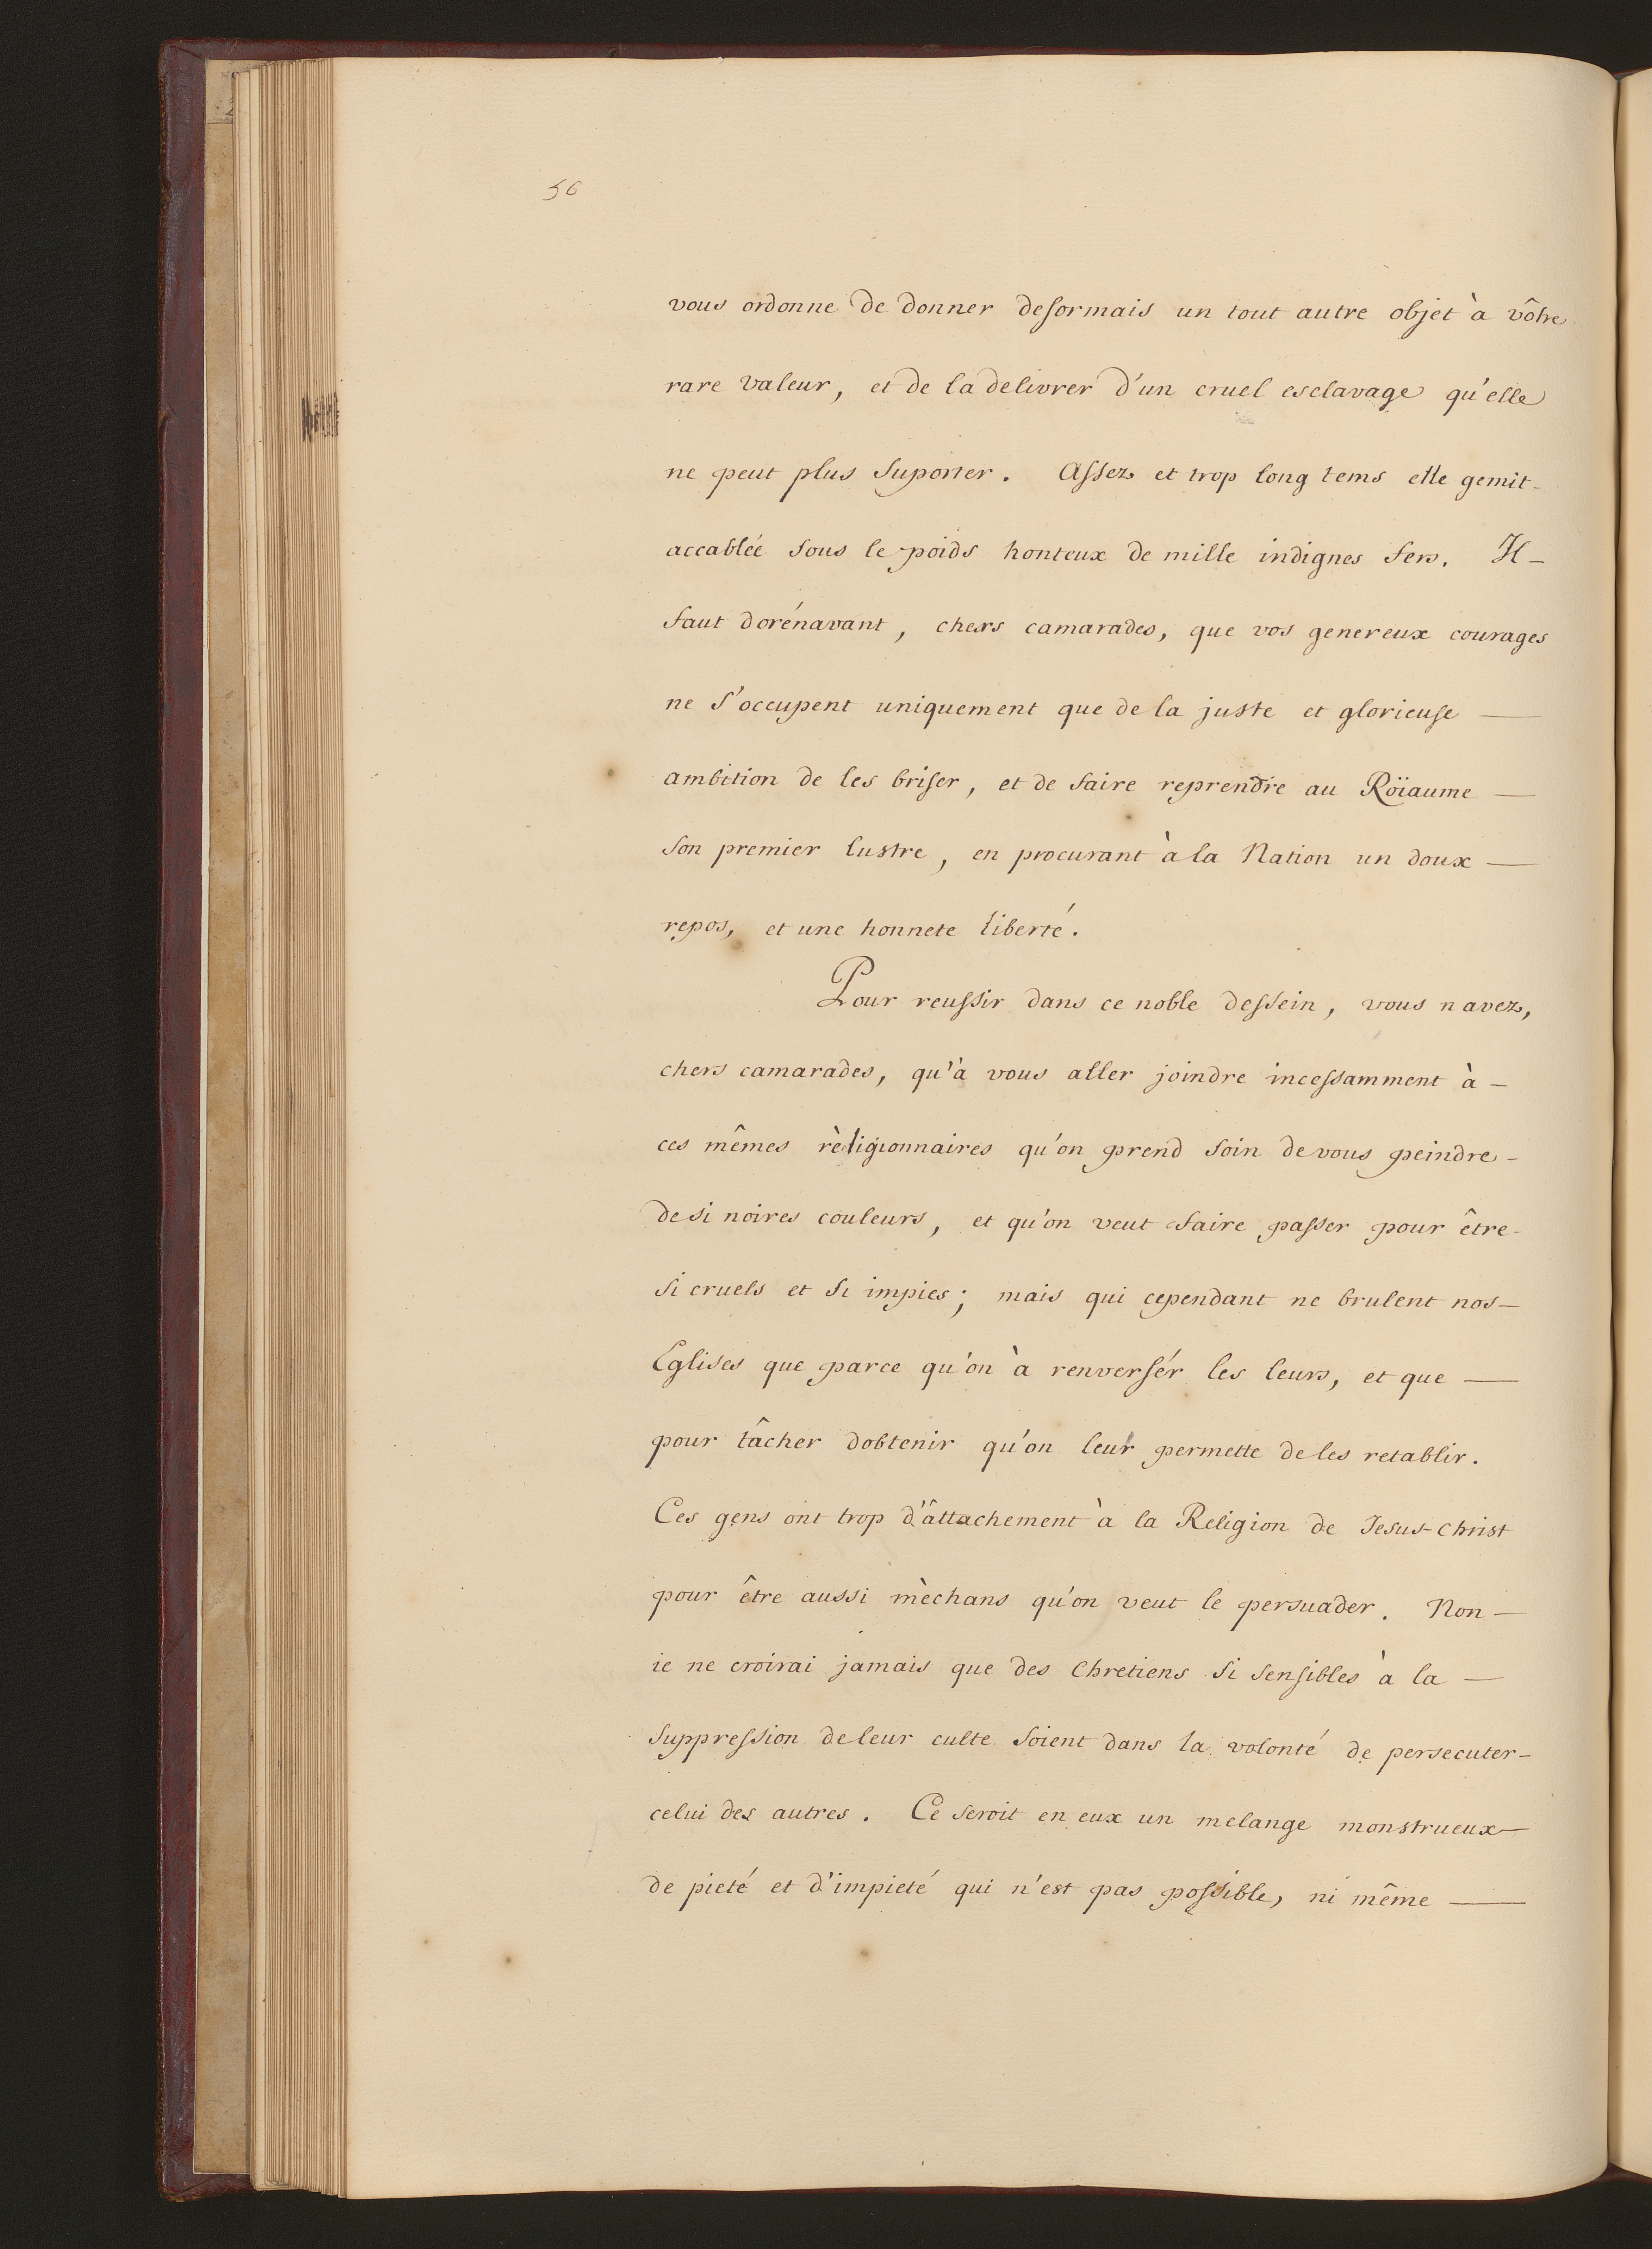 56
vous ordonne de donner desormais un tout autre objet à vôtre
rare valeur, et de la delivrer d'un cruel esclavage qu'elle
ne peut plus suporter. Assez et trop long tems elle gemit
accablée sous le poids honteux de mille indignes fers. Il
faut dorénavant, chers camarades, que vos genereux courages
ne s'occupent uniquement que de la juste et glorieuse
ambition de les briser, et de faire reprendre au Röiaume
son premier lustre, en procurant à la Nation un doux
repos, et une honnete liberté.
Pour reussir dans ce noble dessein, vous navez,
chers camarades, qu'à vous aller joindre incessamment à
ces mêmes rèligionnaires qu'on prend soin de vous peindre
de si noires couleurs, et qu'on veut faire passer pour être
si cruels et si impies; mais qui cependant ne brulent nos
Eglises que parce qu'on à renversér les leurs, et que
pour tâcher dobtenir qu'on leur permette de les retablir.
Ces gens ont trop d'âttachement à la Religion de Jesus-Christ
pour être aussi mèchans qu'on veut le persuader. Non
ie ne croirai jamais que des Chretiens si sensibles à la
suppression de leur culte soient dans la volonté de persecuter
celui des autres. Ce seroit en eux un melange monstrueux
de pieté et d'impieté qui n'est pas possible, ni même